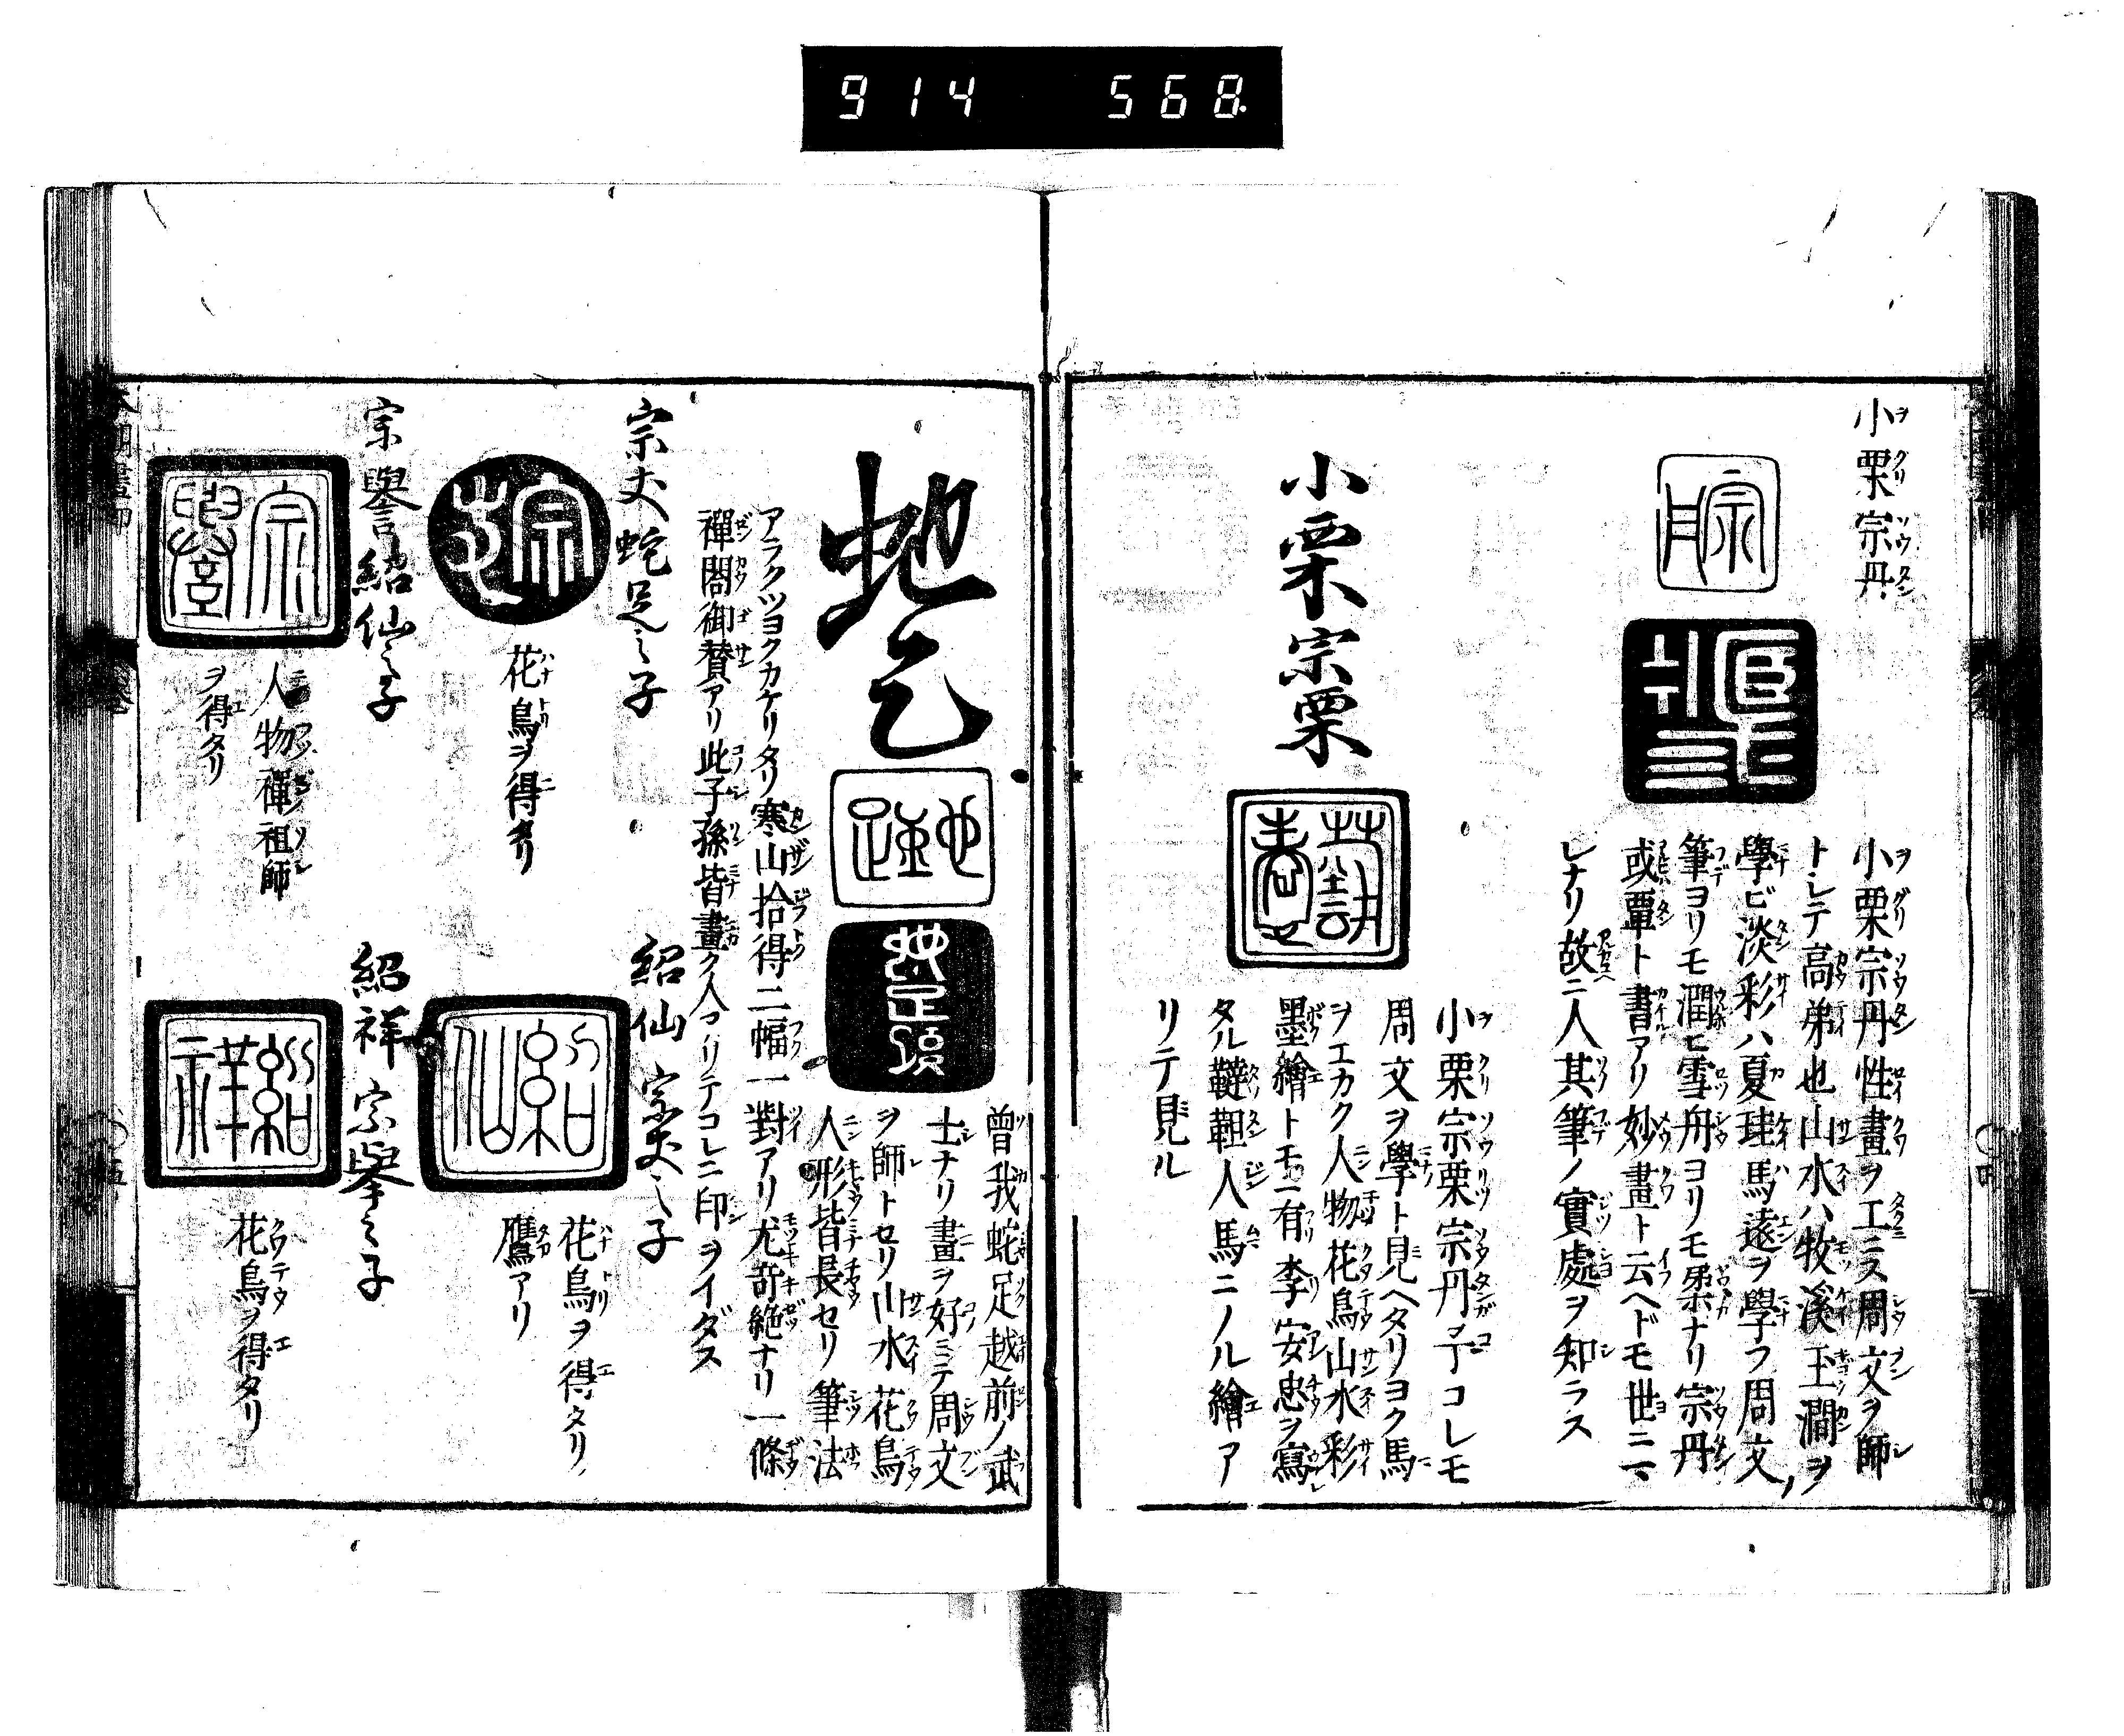 914 568
小栗宗丹
小栗宗丹性畫ヲ工ニス周文ヲ師
トレテ高弟也山水ハ牧溪玉澗ヲ
學ビ淡彩ハ夏珪馬遠ヲ學フ周文ノ
筆ヨリモ潤ヒ雪舟ヨリモ柔ナリ宗丹
或覃ト書アリ妙畫ト云ヘドモ世ニマ
レナリ故ニ人其筆ノ實處ヲ知ラス
小栗宗栗
小栗宗栗宗丹子コレモ
周文ヲ學ト見ヘタリヨク馬
ヲエカク人物花鳥山水彩
墨繪トモニ有李安忠ヲ寫
タル韃靼人馬ニノル繪ア
リテ見ル
蛇足
曽我蛇足越前ノ武
士ナリ畫ヲ好ミテ周文
ヲ師トセリ山水花鳥
人形皆長セリ筆法
アラクツヨクカケリタリ寒山拾得二幅一對アリ尤奇絶ナリ一條
禪閤御賛アリ此子孫皆畫ク人アリテコレニ印ヲイダス
宗丈蛇足之子
宗丈
花鳥ヲ得タリ
紹仙宗丈之子
紹仙
花鳥ヲ得タリ
鷹アリ
宗譽紹仙之子
宗譽
人物禪祖師
ヲ得タリ
紹祥宗譽之子
紹祥
花鳥ヲ得タリ